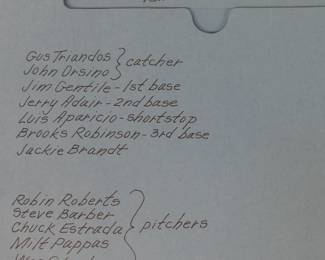 Gus Triandos } catcher
John Orsino
Jim Gentile - 1st base
Jerry Adair - 2nd base
Luis Aparicio - shortstop
Brooks Robinson - 3rd base
Jackie Brandt
Robin Roberts
Steve Barber
Chuck Estrada } pitchers
Milt Pappas